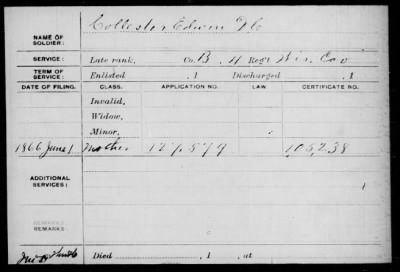 NAME OF SOLDIER: Collester Edwin
SERVICE: Late rank, Co. B. 4 Reg't Wis. Cav
TERM OF SERVICE: Enlisted , 1 Discharged , 1
DATE OF FILING. CLASS. APPLICATION NO. LAW. CERTIFICATE NO.
Invalid,
Widow,
Minor,
1866 June 1 Mother 127,879 106,238
ADDITIONAL SERVICES:
REMARKS
REMARKS:
Died , 1 , at